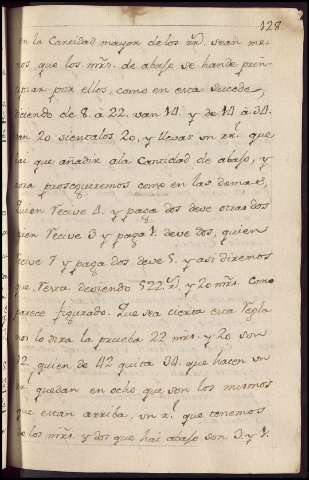 128.
en la Cantidad mayor de los rr.^s sean me-
nos, que los mrs. de abajo se hande prin-
cipiar por ellos, como en esta sucede,
diciendo de 8. à 22. van 14. y de 14 à 34.
van 20 sientalos 20, y llevar un rr.^l que
hai que añadir ala Cantidad de abajo, y
ora proseguiremos como en las demas,
Quien recive 4. y paga dos deve otras dos
quien recive 3 y paga 1. deve dos, quien
recive 7 y paga dos deve 5. y asi diremos
que resta deviendo 522 r.^s y 20 mrs. Como
parece figurado. Que sea cierta esta regla
nos lo dira la prueba 22 mrs. y 20 son
42. quien de 42 quita 34. que hacen un
r.^l quedan en ocho que son los mismos
que estan arriba, un r.^l que tenemos
de los mrs. y dos que hai abajo son 3 y 1.